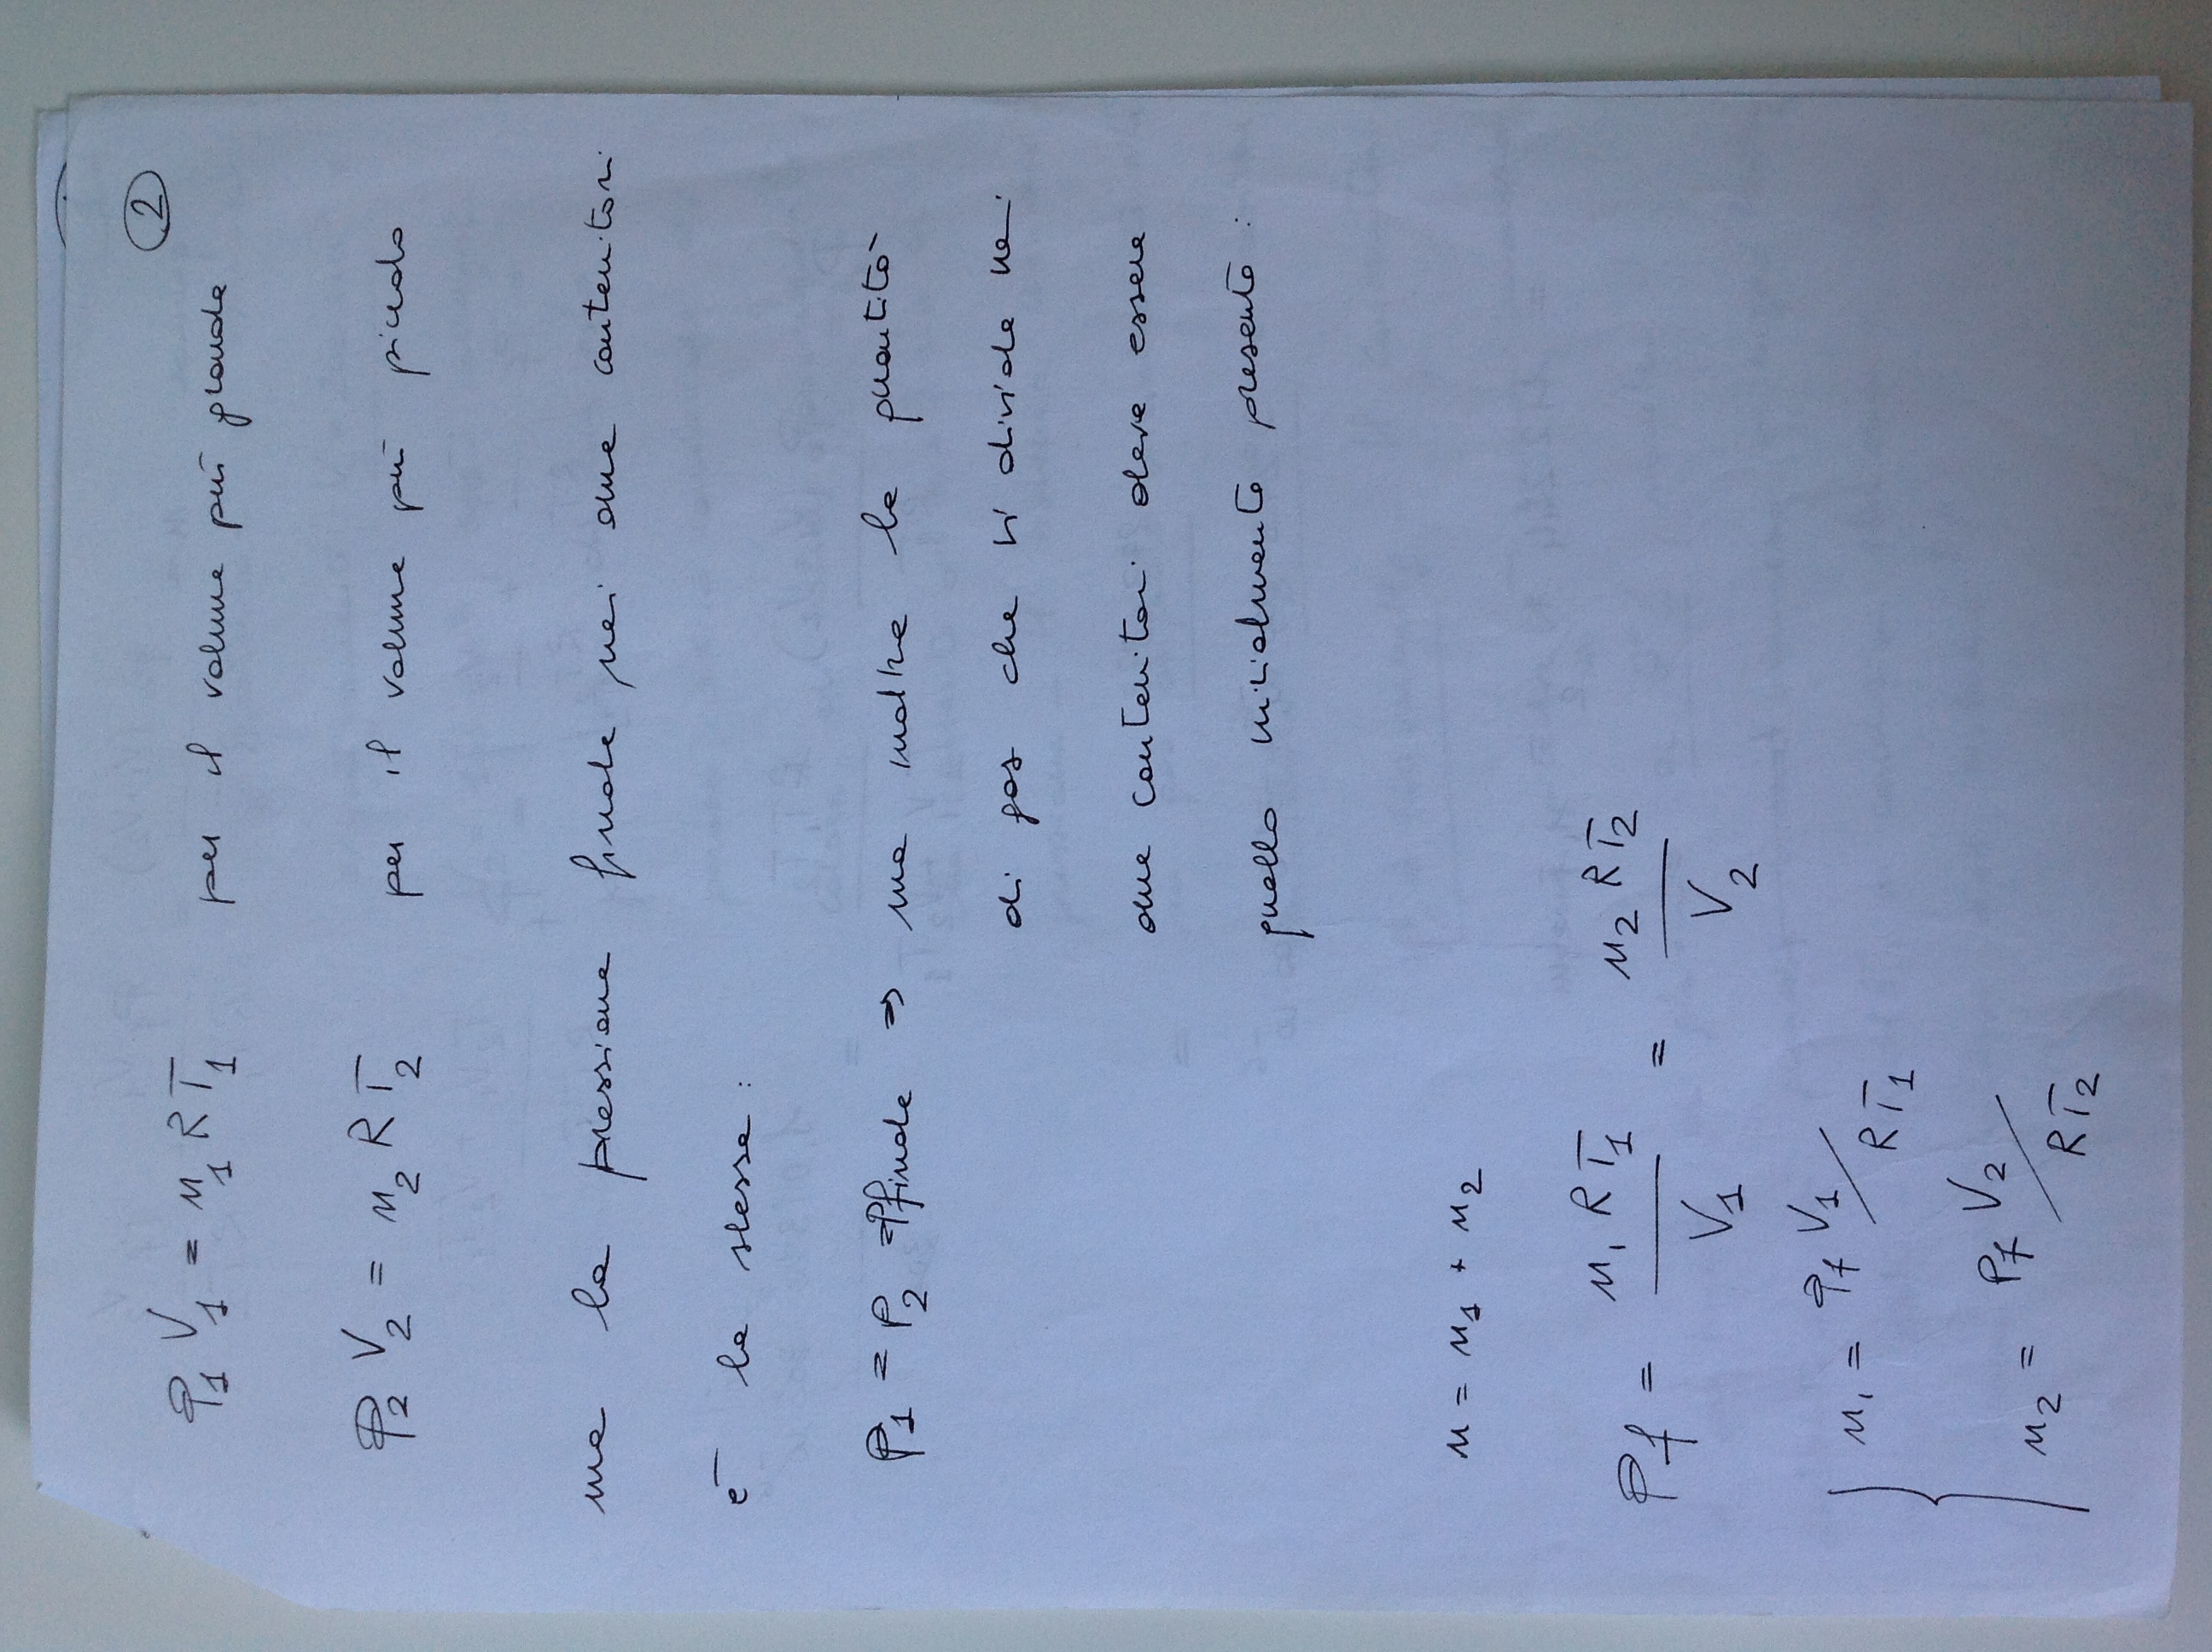 2
P₁ V₁ = n₁ R T₁ per il volume più grande
P₂ V₂ = n₂ R T₂ per il volume più piccolo
ma la pressione finale nei due contenitori
è la stessa :
P₁ = P₂ = Pfinale ⇒ ma inoltre la quantità
di gas che si divide nei
due contenitori deve essere
quella inizialmente presente :
n = n₁ + n₂
Pf = n₁ R T₁ / V₁ = n₂ R T₂ / V₂
n₁ = Pf V₁ / R T₁
n₂ = Pf V₂ / R T₂